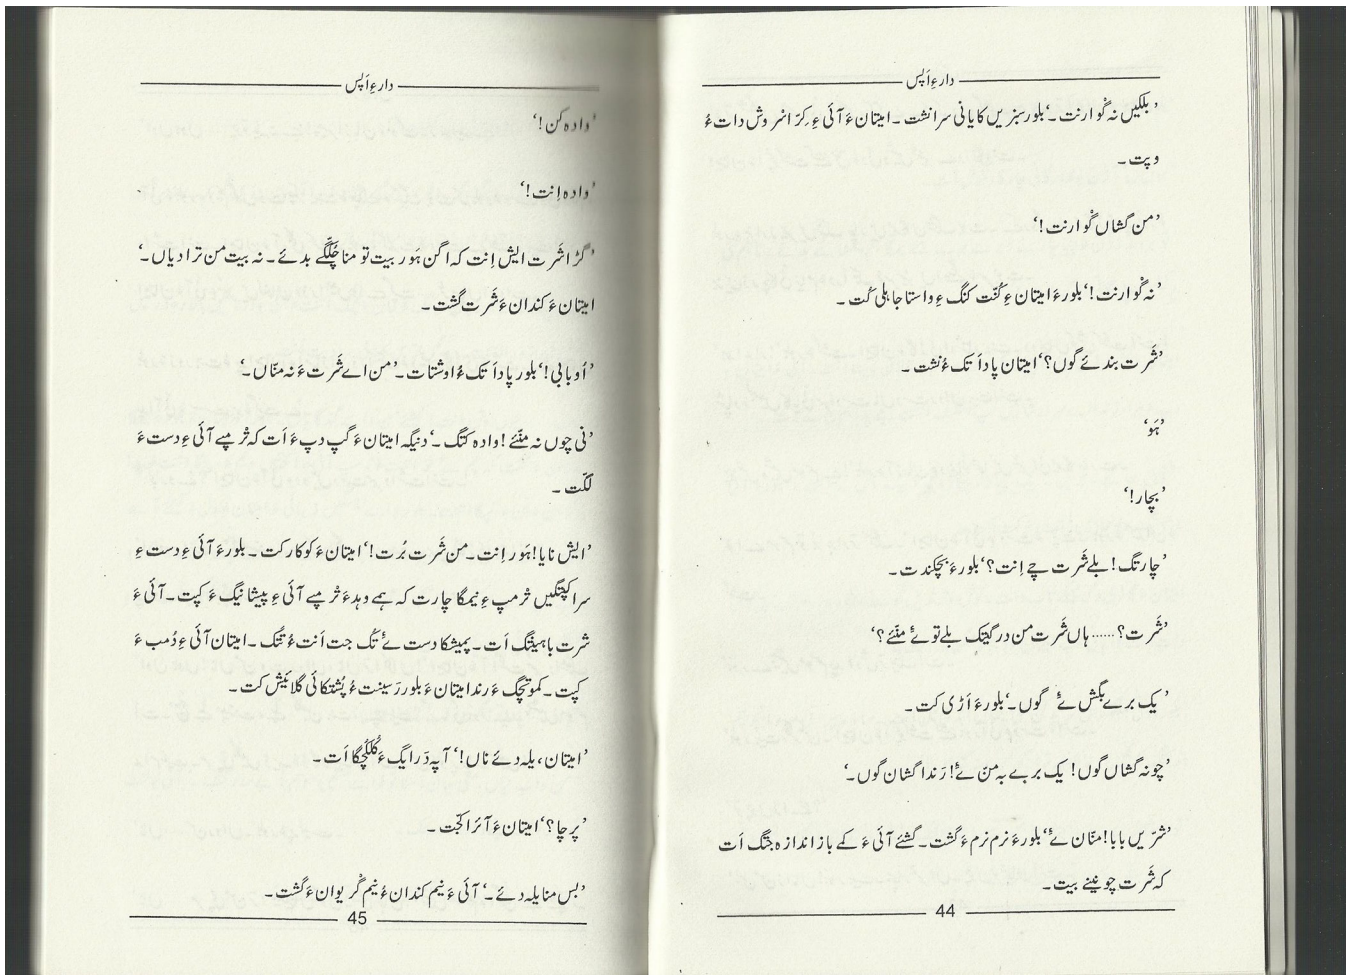 دارءِ اَپس
’بلکیں نہ گْوارنت۔‘ بلور سبزیں کایانی سرا نشت۔ امیتان ءَ آئی ءِ کِرّا سر وش دات ءُ
وپت۔
’من گشاں گْوارنت!‘
’نہ گْوارنت!‘ بلور ءَ امیتان ءِ کُنّت کنگ ءِ واستا جاہلی کُت۔
’شَرت بندئے گوں؟‘ امیتان پاد اَتک ءُ نشت۔
’ہَو‘
’بچار!‘
’چارتگ! بلے شَرت چے اِنت؟‘ بلور ءَ بچکندت۔
’شَرت؟...... ہاں شَرت من در گیتک بلے تو ئے منّئے؟‘
’یک برے بگش ئے گوں۔‘ بلور ءَ اَڑی کت۔
’چو نہ گشاں گوں! یک برے بہ منّ ئے! رَندا گشان گوں۔‘
’شرّیں بابا! منّان ئے‘ بلور ءَ نرم نرم ءَ گشت۔ گشئے آئی ءَ کے باز اندازہ جتگ اَت
کہ شَرت چونینے بیت۔
44
دارءِ اَپس
’وادہ کن!‘
’وادہ اِنت!‘
’گڑا شَرت ایش اِنت کہ اگن ہَور بیت تو منا چُلگّے بدئے۔ نہ بیت من ترا دیاں۔‘
امیتان ءَ کندان ءَ شَرت گشت۔
’اَو بابی!‘ بلور پاد اَتک ءُ اوشتات۔ ’من اے شَرت ءَ نہ منّاں۔‘
’نی چوں نہ منّئے! وادہ کتگ۔‘ دنیگہ امیتان ءَ گپ دپ ءَ اَت کہ تْرمپے آئی ءِ دست ءَ
لگّت۔
’ایش نایا! ہَور اِنت۔ من شَرت بُرت!‘ امیتان ءَ کوکار کت۔ بلور ءَ آئی ءِ دست ءِ
سرا کپتگیں تْرمپ ءِ نیمگا چارت کہ ہمے وہد ءَ تْرمپے آئی ءِ پیشانیگ ءَ کپت۔ آئی ءَ
شرت باہیتگ اَت۔ پمیشکا دست ئے تُک جت اَنت ءُ تتک۔ امیتان آئی ءِ دُمب ءَ
کپت۔ کمو تچگ ءَ رند امیتان ءَ بلور رَسینت ءُ پُشتکائی گلائیش کت۔
’امیتان، یلہ دئے ناں!‘ آ پہ دَرایگ ءَ کُلکُچگا اَت۔
’پرچا؟‘ امیتان ءَ آئرا کجّت۔
’بس منا یلہ دئے۔‘ آئی ءَ نیم کندان ءُ نیم گْریوان ءَ گشت۔
45